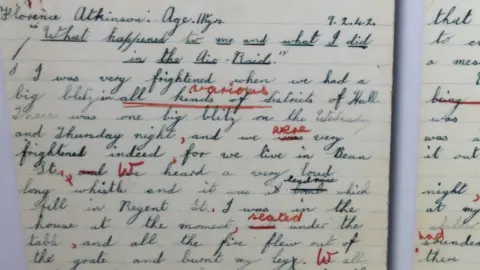 Florence Atkinson. Age. 11yrs 9.2.42.
"What happened to me and what I did
in the Air Raid."
I was very frightened when we had a
various
big blitz in all kinds of districts of Hull
There was one big blitz on the Wednesday
were
and Thursday night, and we very
frightened indeed, for we live in Bean
St., and We heard a very loud
long whistle and it was a bomb which
fell in Regent St. I was in the
seated
house at the moment, under the
table, and all the fire flew out of
the grate and burnt my legs. W all
that
to
a mes
being
was
was a
it out
night,
at my
had
sounded
there